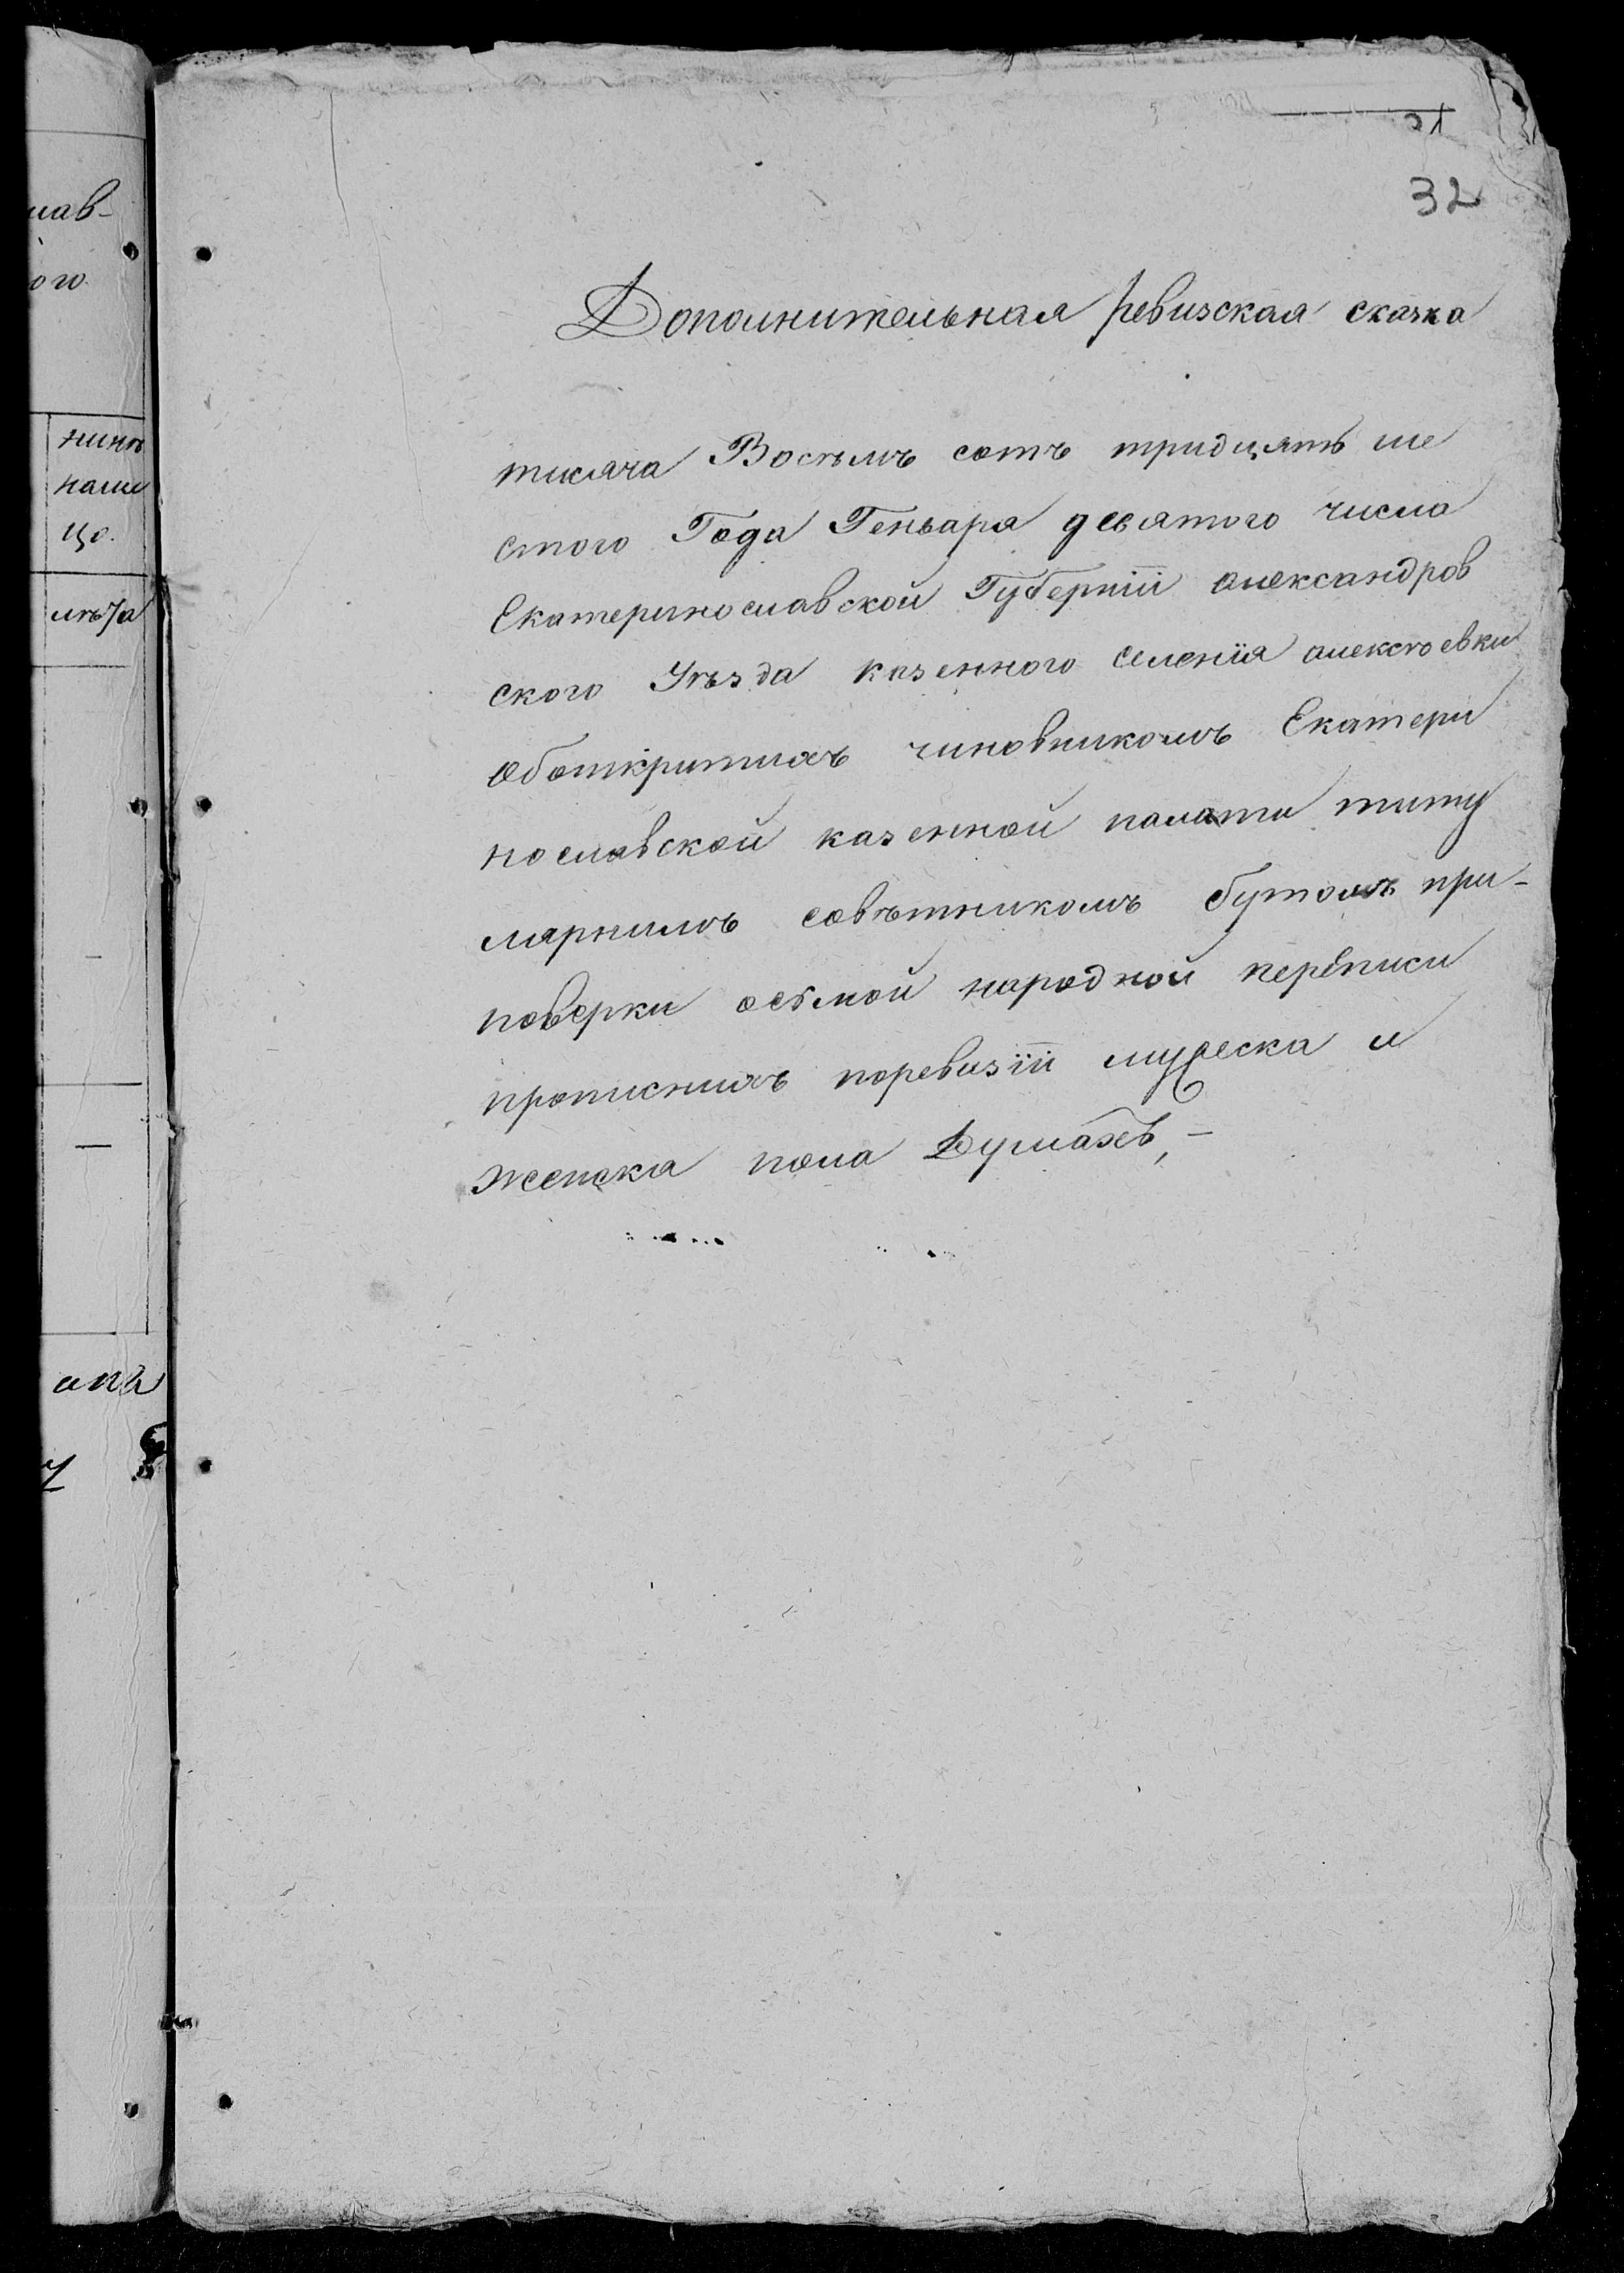 31
32
Дополнительная ревизская сказка
тисяча Восѣмъ сотъ тридцять ше
стого Года Генваря девятого числа
Екатеринославской Губерніи александров
ского Уѣзда казенного селенія алексѣевки
оботкритихъ чиновникомъ Екатери
нославской казенной палати титу
лярнимъ совѣтникомъ при-
поверки осьмой народной переписи
прописнихъ поревизіи мужеска и
женска пола Душахъ,-
лав-
ого
нинѣ
нали
цо.
лѣта